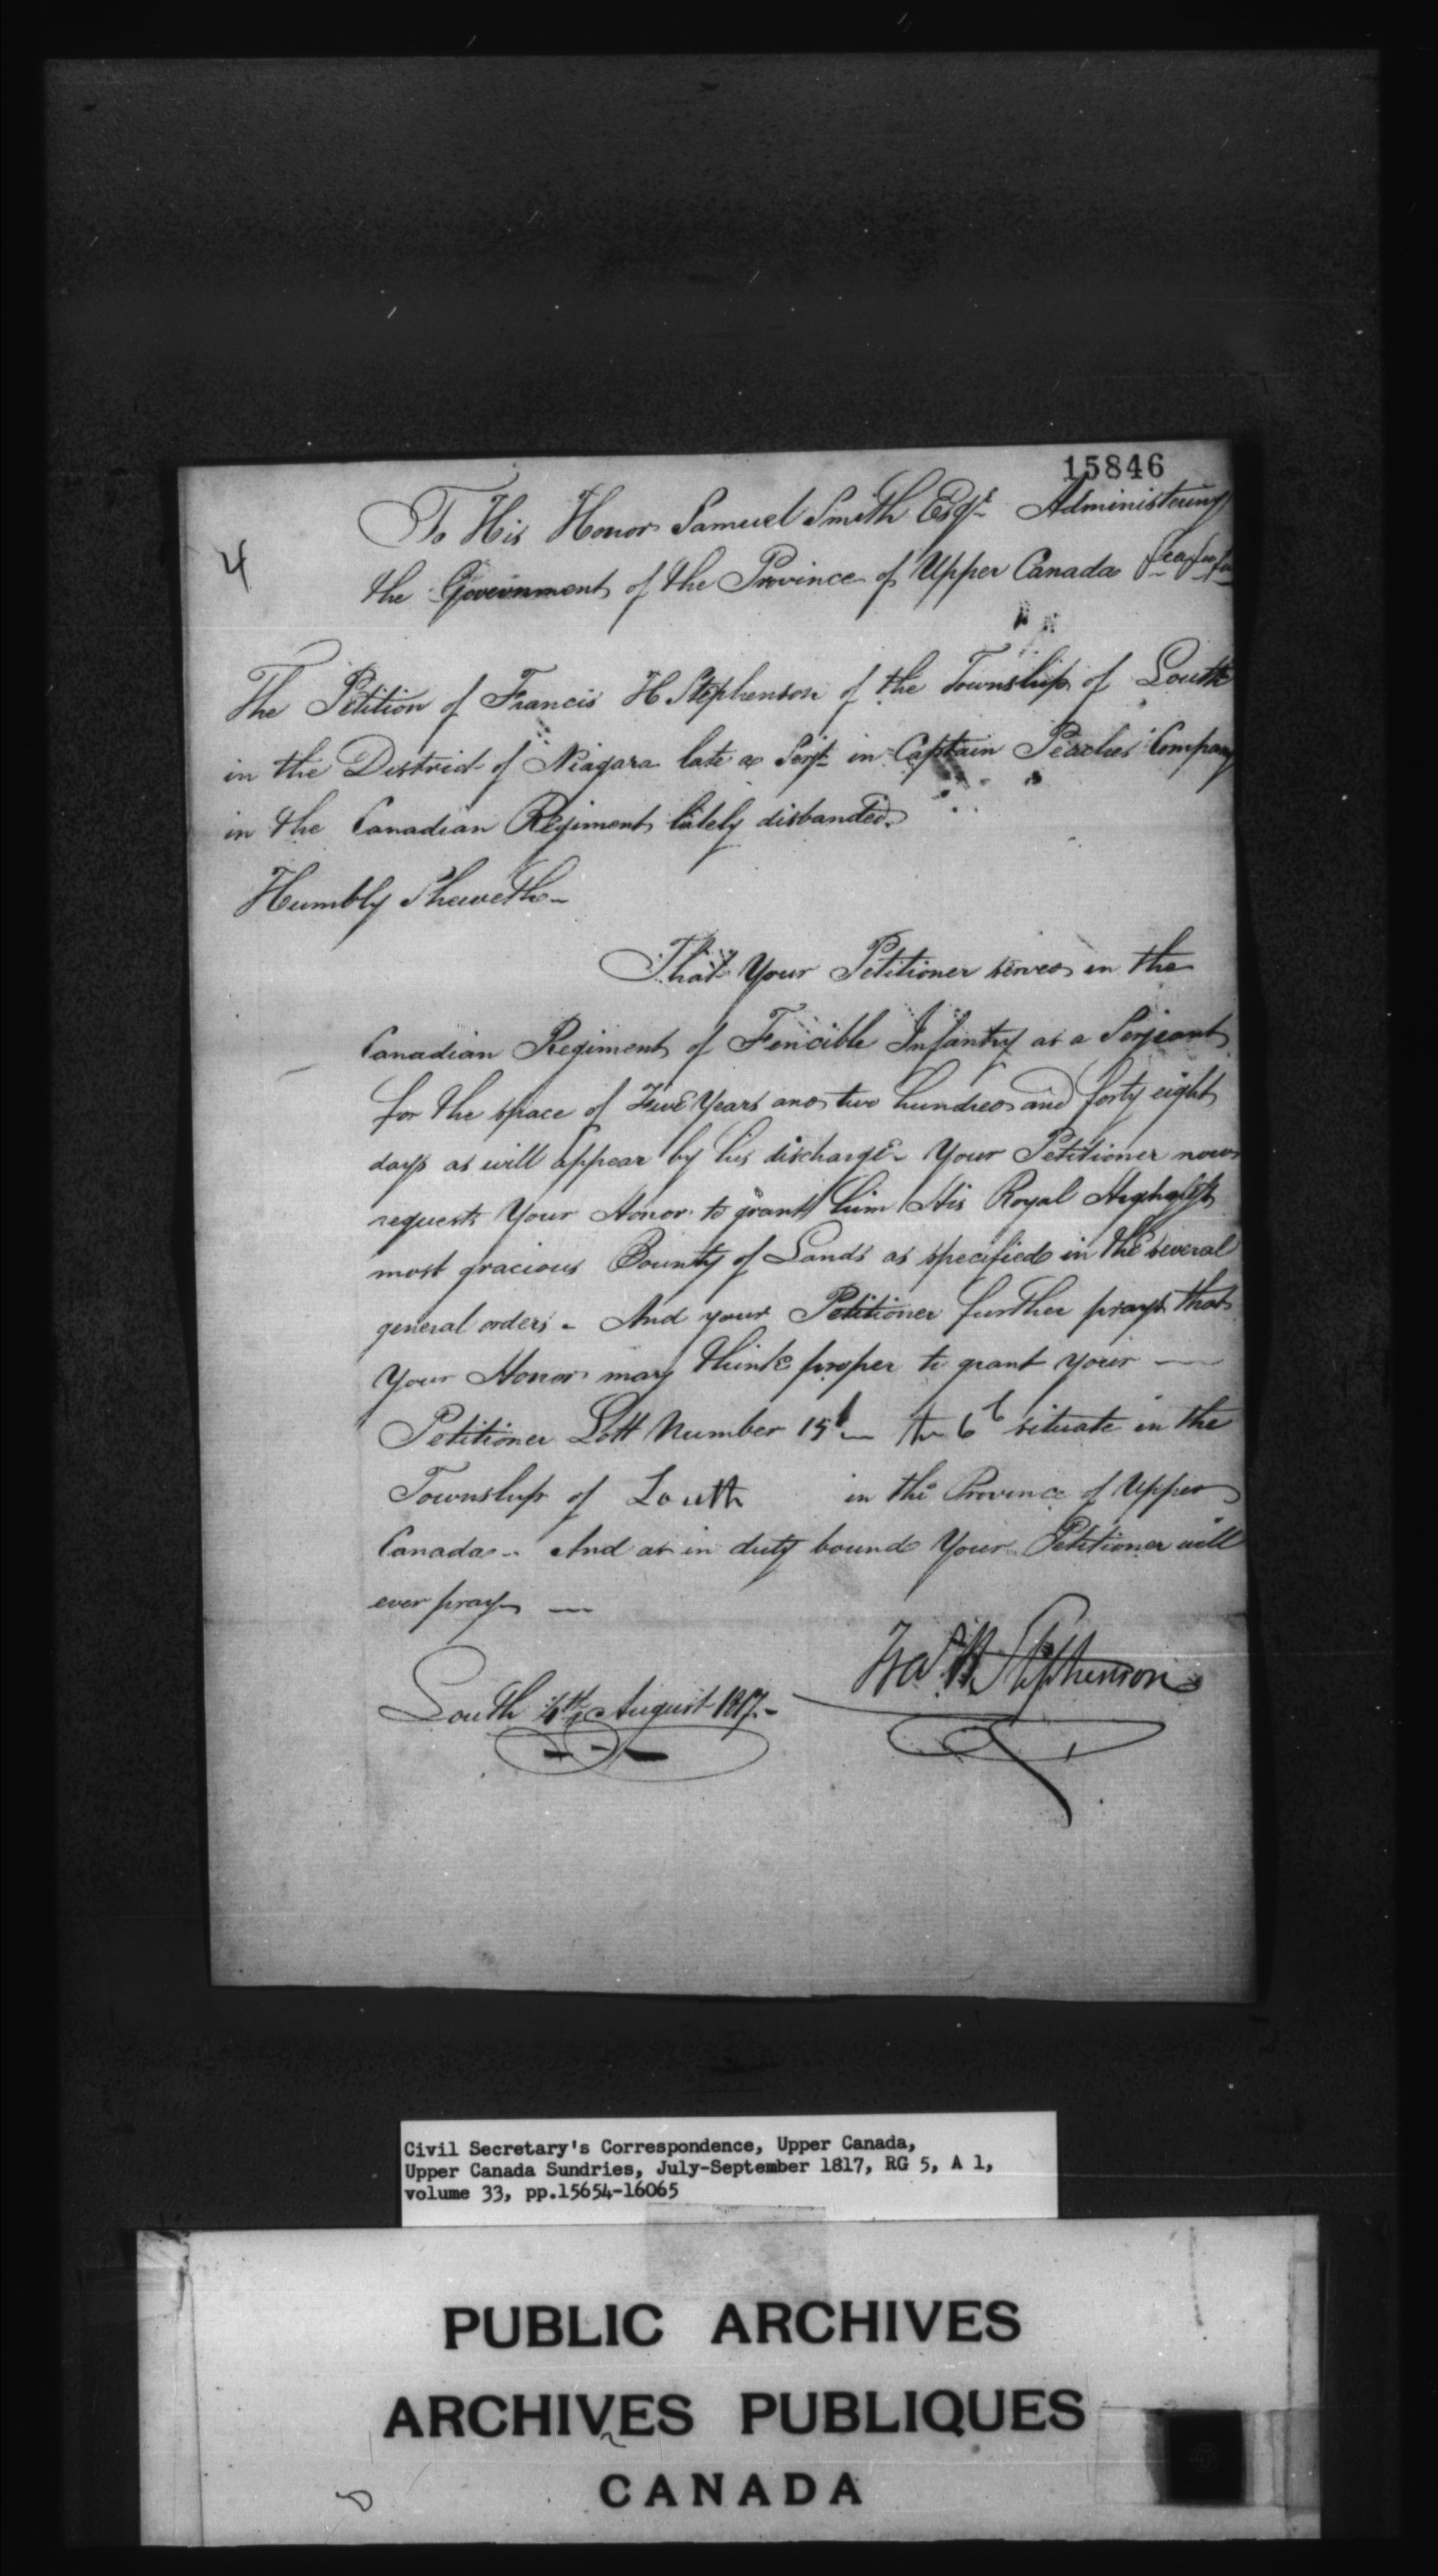 15846
To His Honor Samuel Smith Esqr. Administering
4
the Government of the Province of Upper Canada &ca &ca &ca
The Petition of Francis H Stephenson of the Township of Louth
in the District of Niagara late a Serjt. in Captain Peaches Company
in the Canadian Regiment lately disbanded.
Humbly Sheweth-
That Your Petitioner served in the
Canadian Regiment of Fencible Infantry as a Serjeant
for the space of Five Years and two hundred and forty eight
days as will appear by his discharge- Your Petitioner now
requests Your Honor to grant him His Royal
most gracious Bounty of Lands as specified in the several
general orders - And your Petitioner further prays that
Your Honor may think proper to grant your —
Petitioner Lott Number 15 6 situate in the
Township of Louth in the Province of Upper
Canada - And as in duty bound Your Petitioner will
ever pray —
Fras. H Stephenson
Louth August 1817.-
Civil Secretary's Correspondence, Upper Canada,
Upper Canada Sundries, July-September 1817, RG 5, A 1,
volume 33, pp.15654-16065
PUBLIC ARCHIVES
ARCHIVES PUBLIQUES
CANADA